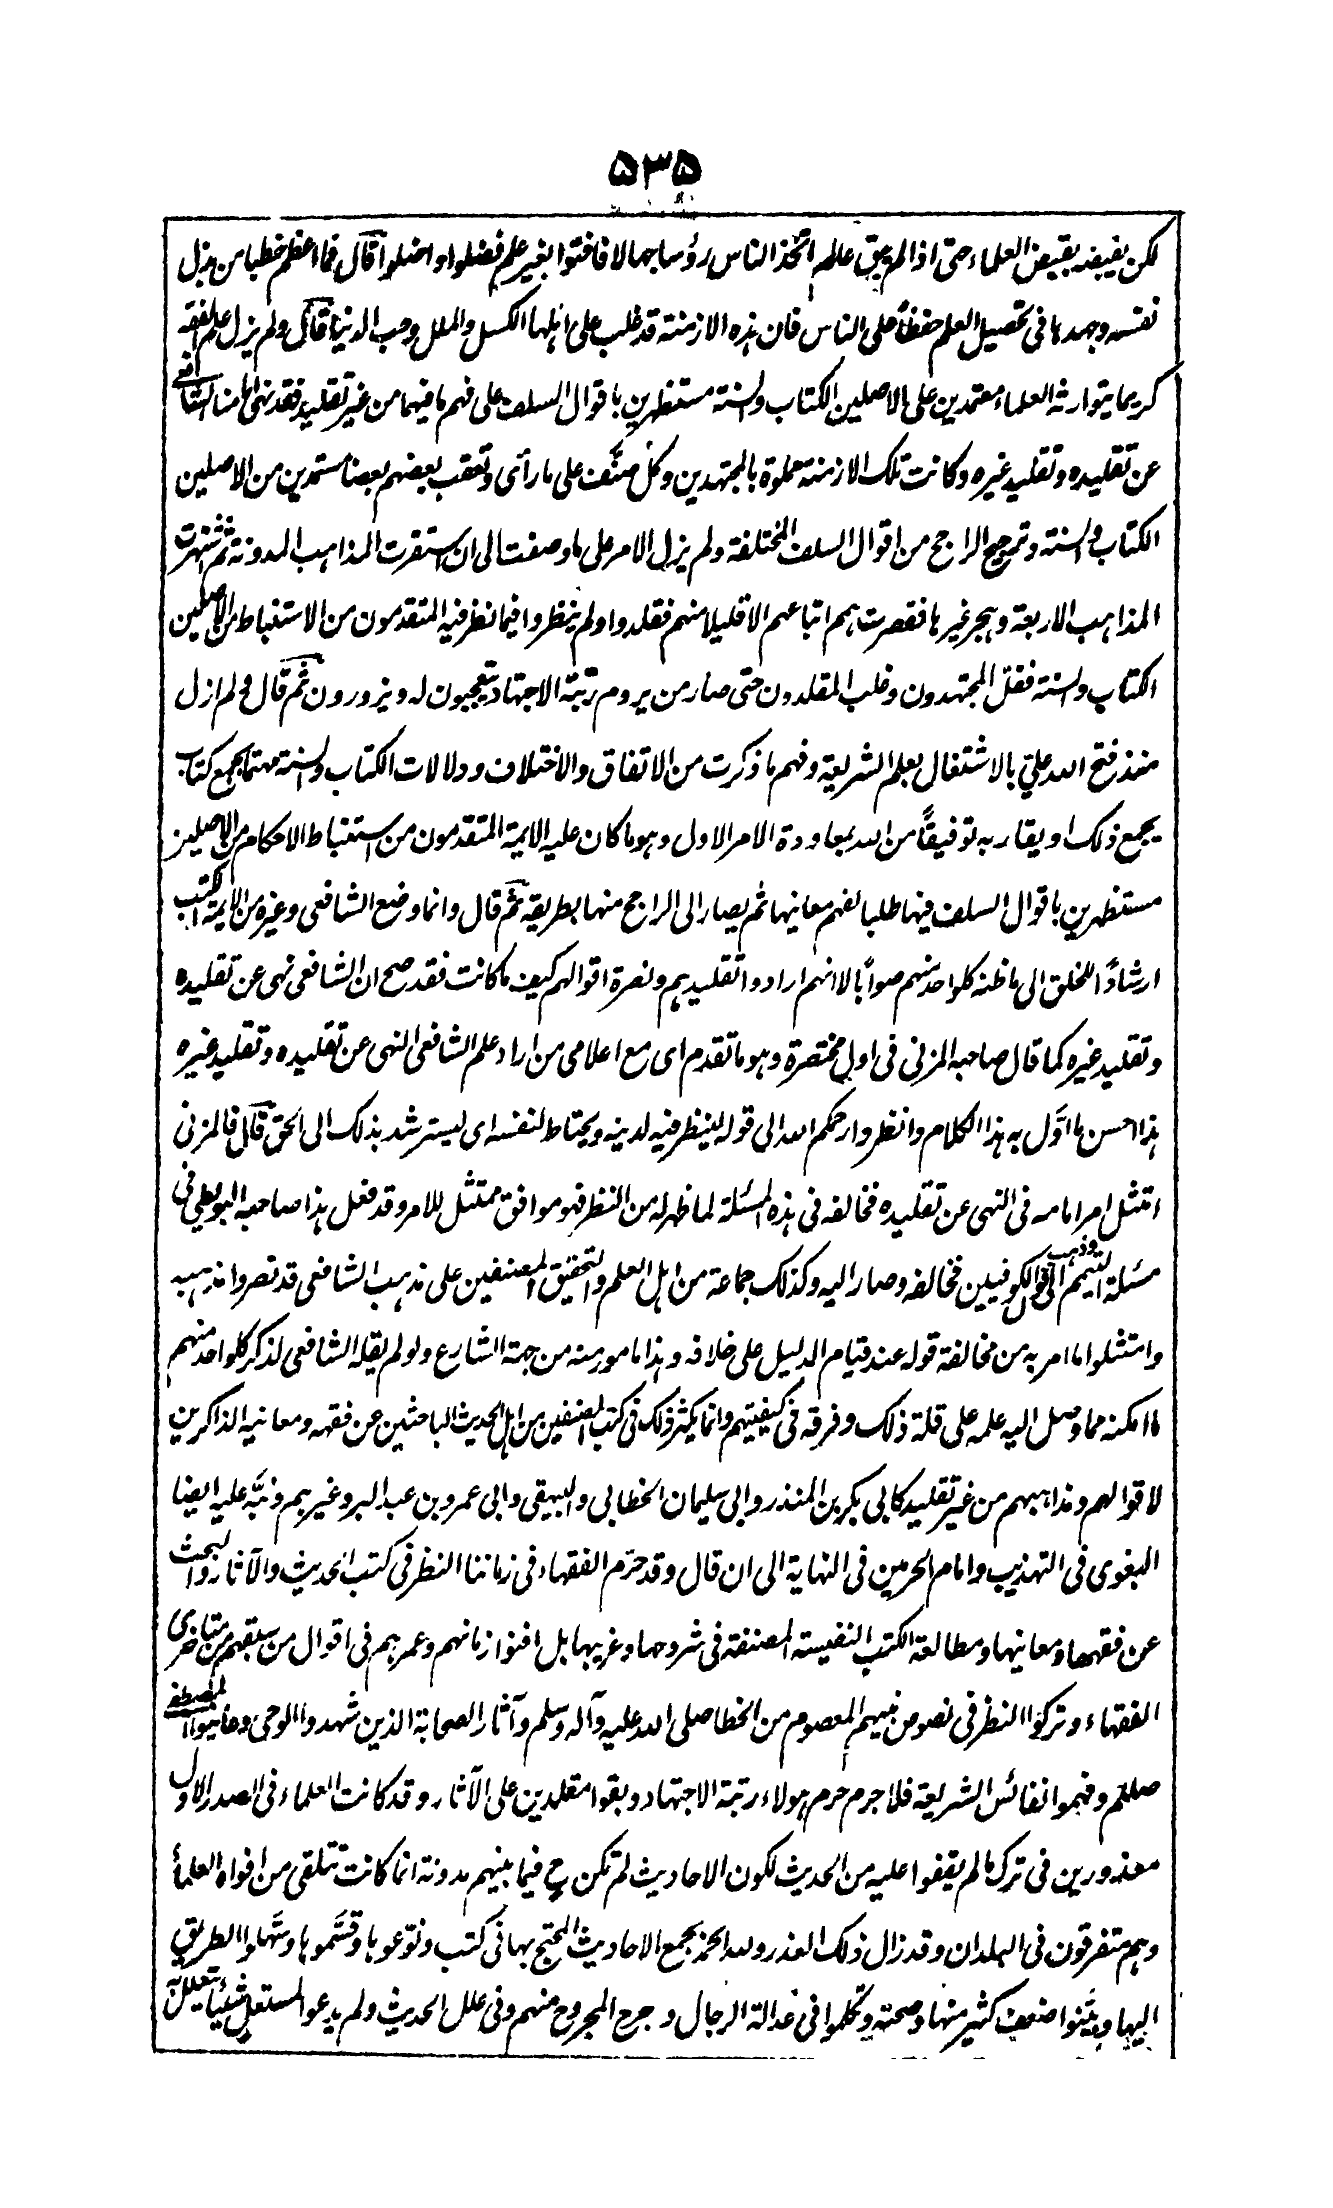 ۵۳۵
لكن يقبضه بقبض العلماء حتى اذا لم يبق عالم اتّخذ الناس رؤسا جهالا فافتوا بغير علم فضلوا واضلوا قال فما اعظم خطبا من بذل
نفسه وجهدها فى تحصيل العلم حفظاً على الناس فان هذه الازمنة قد غلب على اهلها الكسل والملل وحب الدنيا قال ولم يزل علم الفقه
كريما يتوارثه العلماء معتمدين على الاصلين الكتاب والسنة مستظهرين باقوال السلف على فهم ما فيهما من غير تقليد فقد نهى امامنا الشافعى
عن تقليده وتقليد غيره وكانت تلك الازمنة مملوة بالمجتهدين وكلٌ صنّف على ما رأى وتعقب بعضهم بعضا مستمدين من الاصلين
الكتاب والسنة وترجيح الراجح من اقوال السلف المختلفة ولم يزل الامر على ما وصفت الى ان استقرت المذاهب المدونة ثم اشتهرت
المذاهب الاربعة وهجر غيرها فقصرت همم اتباعهم الا قليلا منهم فقلدوا ولم ينظروا فيما نظر فيه المتقدمون من الاستنباط من الاصلين
الكتاب والسنة فقلّ المجتهدون وغلب المقلدون حتى صار من يروم رتبة الاجتهاد يتعجبون له ويزورون ثم قال ولم ازل
منذ فتح الله عليّ بالاشتغال بعلم الشريعة وفهم ما ذكرت من الاتفاق والاختلاف ودلالات الكتاب والسنة مهتما بجمع كتاب
يجمع ذلك او يقاربه توفيقاً من الله بمعاودة الامر الاول وهو ما كان عليه الايمة المتقدمون من استنباط الاحكام من الاصلين
مستظهرين باقوال السلف فيها طلبا لفهم معانيها ثم يصار الى الراجح منها بطريقه ثم قال وانما وضع الشافعى وغيره من الايمة الكتب
ارشاداً للخلق الى ما ظنه كل واحد منهم صواباً لا انهم ارادوا تقليدهم ونصرة اقوالهم كيف ما كانت فقد صح ان الشافعى نهى عن تقليده
وتقليد غيره كما قال صاحبه المزنى فى اول مختصرة وهو ما تقدم اى مع اعلامى من اراد علم الشافعى النهى عن تقليده وتقليد غيره
هذا احسن ما اوّل به هذا الكلام وانظروا رحمكم الله الى قوله لينظر فيه لدينه ويحتاط لنفسه اى ليسترشد بذلك الى الحق قال فالمزنى
امتثل امر امامه فى النهى عن تقليده فخالفه فى هذه المسئلة لما ظهر له من النظر فهو موافق ممتثل للامر وقد فعل هذا صاحبه البويطي فى
مسئلة التيمم وذهب الى قول الكوفيين فخالفه وصار اليه وكذلك جماعة من اهل العلم والتحقيق المصنفين على مذهب الشافعى قد نصروا مذهبه
وامتثلوا ما امر به من مخالفة قوله عند قيام الدليل على خلافه وهذا مامور منه من جهة الشارع ولو لم يقله الشافعى لذكر كل واحد منهم
ما امكنه مما وصل اليه علمه على قلة ذلك وفرقه فى كيفيتهم وانما يكثر ذلك فى كتب المصنفين من اهل الحديث الباحثين عن فقهه ومعانيه الذاكرين
لاقوالهم ومذاهبهم من غير تقليد كابى بكر بن المنذر وابى سليمان الخطابى والبيهقى وابى عمرو بن عبد البر وغيرهم ونبّه عليه ايضا
البغوى فى التهذيب وامام الحرمين فى النهاية الى ان قال وقد حرّم الفقهاء فى زماننا النظر فى كتب الحديث والآثار والبحث
عن فقهها ومعانيها ومطالعة الكتب النفيسة المصنفة فى شروحها وغريبها بل افنوا زمانهم وعمرهم فى اقوال من سبقهم من متاخرى
الفقهاء وتركوا النظر فى نصوص نبيهم المعصوم من الخطا صلى الله عليه وآله وسلم وآثار الصحابة الذين شهدوا الوحى وعاينوا المصطفى
صللم وفهموا نفائس الشريعة فلا جرم حرم هولاء رتبة الاجتهاد وبقوا مقلدين على الآثار وقد كانت العلماء فى الصدر الاول
معذورين فى ترك ما لم يقفوا عليه من الحديث لكون الاحاديث لم تكن ح فيما بينهم مدونة انما كانت تتلقى من افواه العلماء
وهم متفرقون فى البلدان وقد زال ذلك العذر ولله الحمد بجمع الاحاديث المحتج بها فى كتب ونوّعوها وقسّموها وسّهلوا الطريق
اليها وبيّنوا ضعف كثير منها وصحته وتكلموا فى عدالة الرجال وجرح المجروح منهم وفى علل الحديث ولم يدعوا لمستعلل شيئا يتعلل به